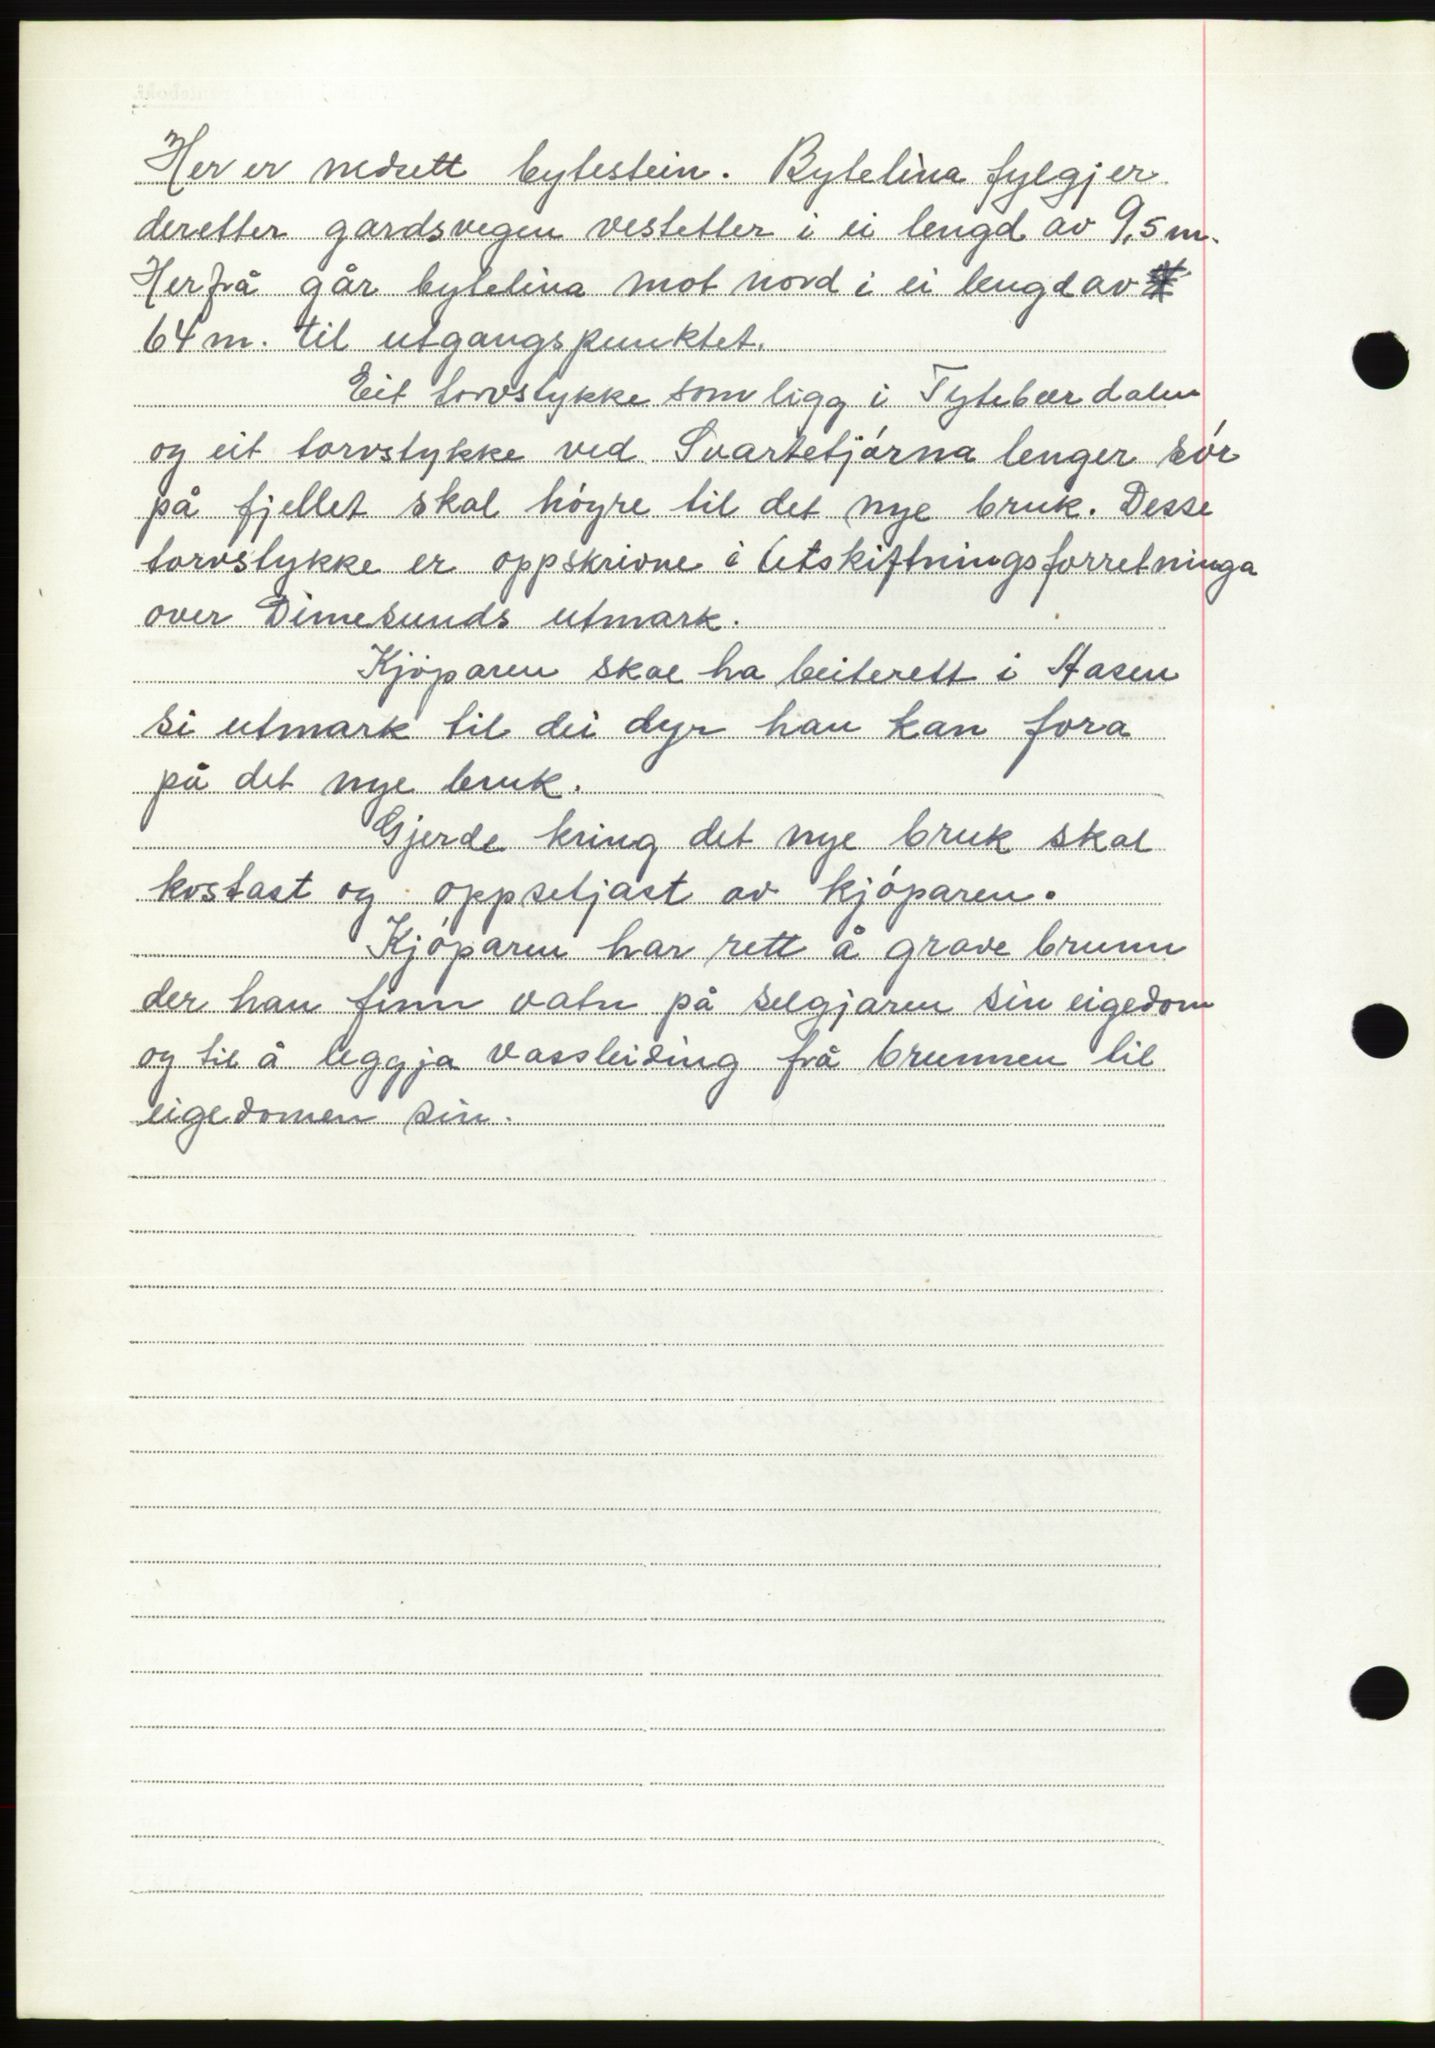 Her er nedsett bytestein. Bytelina fylgjer
deretter gardsvegen vestetter i ei lengd av 9,5 m.
Herfrå går bytelina mot nord i ei lengd av
64 m. til utgangspunktet.
Eit torvstykke som ligg i Tytebærdalen
og eit torvstykke ved Svartetjórna lenger sór
på fjellet skal hóyre til det nye bruk. Desse
torvstykke er oppskrivne i Utskiftningsforretninga
over Dimesunds utmark.
Kjöparen skal ha beiterett i Hasen
si utmark til dei dyr han kan fora
på det nye bruk.
Gjerde kring det nye bruk skal
kostast og oppsetjast av kjóparen.
Kjóparen har rett å grave brunn
der han finn vatn på selgjaren sin eigedom
og til å leggja vassleiding frå brunnen til
eigedomen sin.